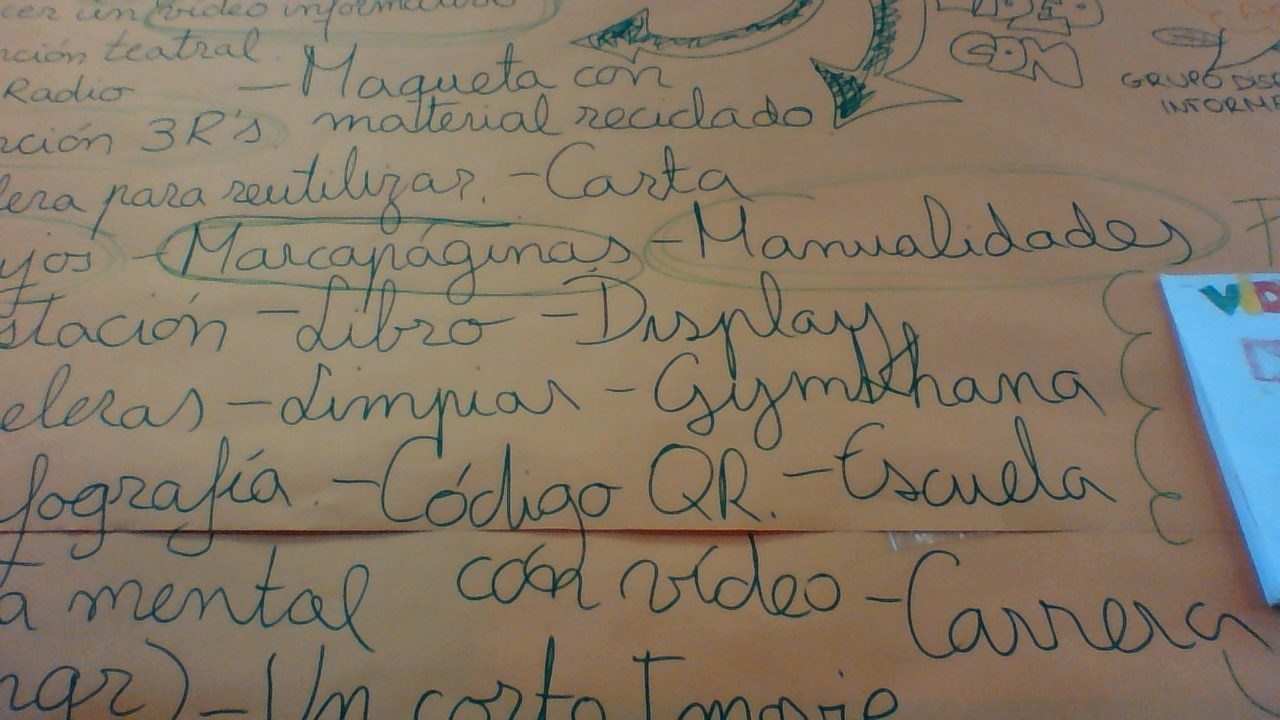 cer un vídeo informativo
nción teatral
Radio - Maqueta con
nción 3R's material reciclado
lera para reutilizar. - Carta
yos - Marcapáginas - Manualidades
stación - Libro - Display
eleras - Limpiar - Gymkhana
fografía. - Código QR. - Escuela
a mental con vídeo - Carrera
ngr) - Un corto Imovie
CON
GRUPO DISE
INFORMA
VID